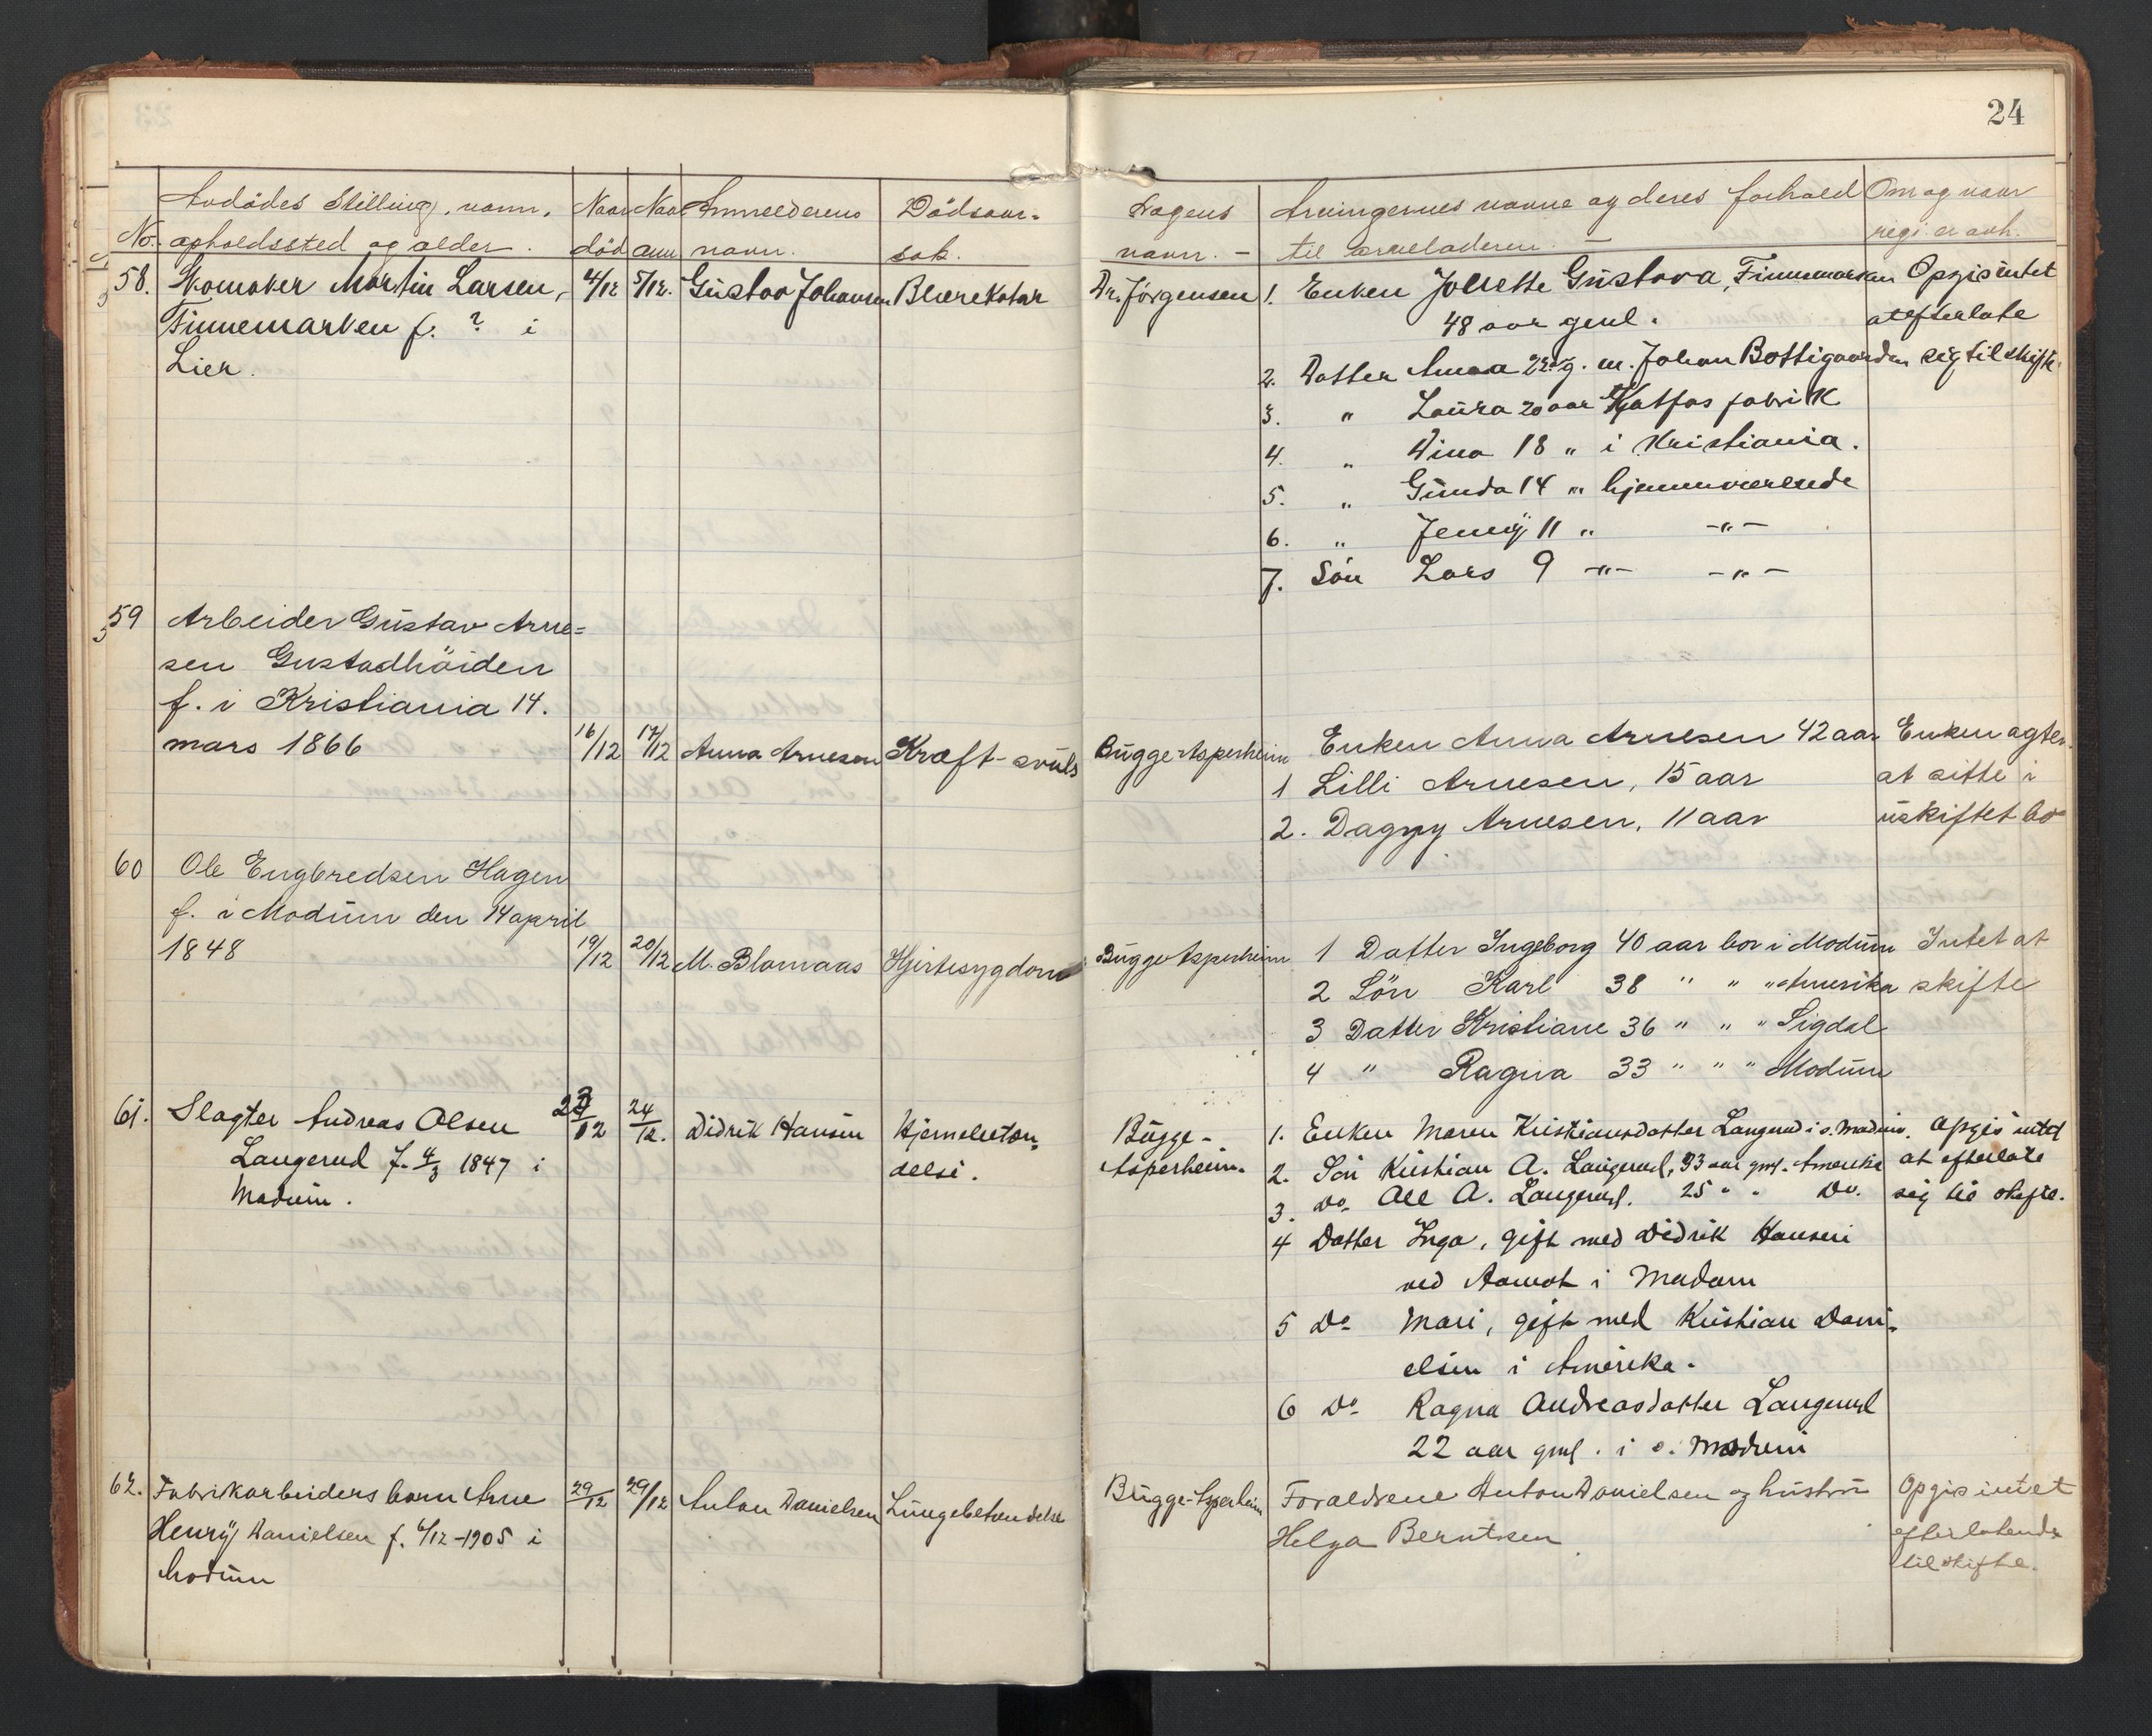 24
No. Avdödes stilling, navn, opholdssted og alder.
Naar död
Naar anm
Anmelderens navn.
Dödsaar-
sak.
Lægens
navn. -
Arvingernes navne og deres forhold
til arveladeren. -
Om og naar
regi er anh.
58. Skomaker Martin Larsen,
Finnemarken f. ? i
Lier.
4/12 5/12. Gustav Johansen Blærekatar
Dr. Jörgensen
1. Enken Gustava, Finnemarken
48 aar geml.
2. Datter Anna 22 g. m. Johan Bottegaarden
3. " Laura 20 aar Katfos fabrik
4. " Dina 18 " i Kristiania.
5. " Gunda 14 " hjemmeværende
6. " Jenny 11 " -"-
7. Sön Lars 9 -"- -"-
Opgis intet
at efterlate
sig til skifte.
59 Arbeider Gustav Arne=
sen Gustadhöiden
f. i Kristiania 14.
mars 1866
16/12 17/12 Anna Arnesen Kræft-svuls
Bugge Asperheim
Enken Anna Arnesen 42 aar
1 Lilli Arnesen, 15 aar
2. Dagny Arnesen, 11 aar
Enken agter
at sitte i
uskiftet bo
60 Ole Engbredsen Hagen
f. i Modum den 14 april
1848
19/12 20/12 M. Blomaas Hjertesygdom
Bugge Asperheim
1 Datter Ingeborg 40 aar bor i Modum
2 Sön Karl 38 " " " Amerika
3 Datter Kristiane 36 " " " Sigdal
4 " Ragna 33 " " " Modum
Intet at
skifte
61. Slagter Andreas Olsen
Langerud f. 4/3 1847 i
Modum.
23/12 24/12. Didrik Hansen Hjernebetæn-
delse.
Bugge-
Asperheim.
1. Enken Maren Kristiansdatter Langerud i s. Modum.
2. Sön Kristian A. Langerud, 33 aar gml. Amerika
3. Do. Ole A. Langerud. 25 " " Do.
4 Datter Inga, gift med Didrik Hansen
ved Aamot i Modum
5 Do Mari, gift med Kristian Dani-
elsen i Amerika.
6 Do Ragna Andreasdatter Langerud
22 aar gml. i s. Modum
Opgis intet
at efterlate
sig til skifte.
62. Fabrikarbeiders barn Arne
Henry Danielsen f. 6/12-1905 i
Modum
29/12 29/12 Anton Danielsen Lungebetændelse
Bugge-Asperheim
Forældrene Anton Danielsen og hustru
Helga Berntsen.
Opgis intet
efterlatende
til skifte.